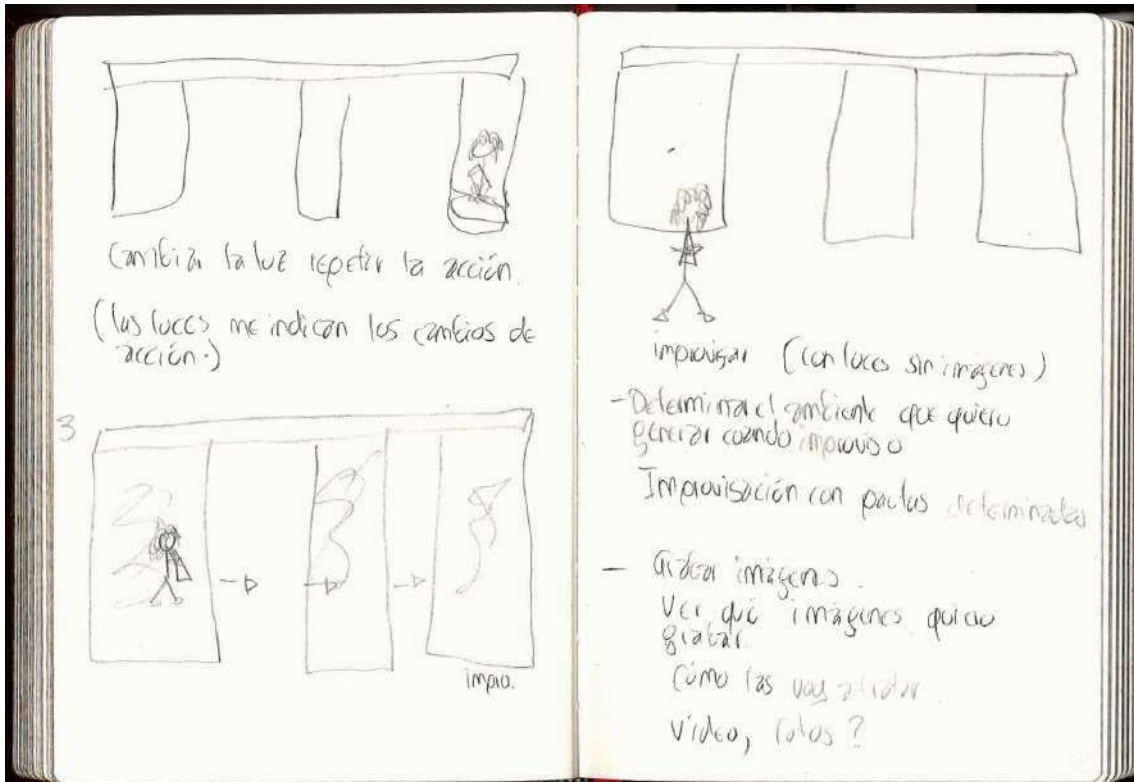 Cambiar la luz repetir la acción.
(las luces me indican los cambios de
acción.)
3
impro.
improvisar (con luces sin imágenes)
- Determinar el ambiente que quiero
generar cuando improviso
Improvisación con pautas determinadas
- Grabar imágenes.
Ver qué imágenes quiero
grabar
Cómo las voy a tratar.
Vídeo, fotos?